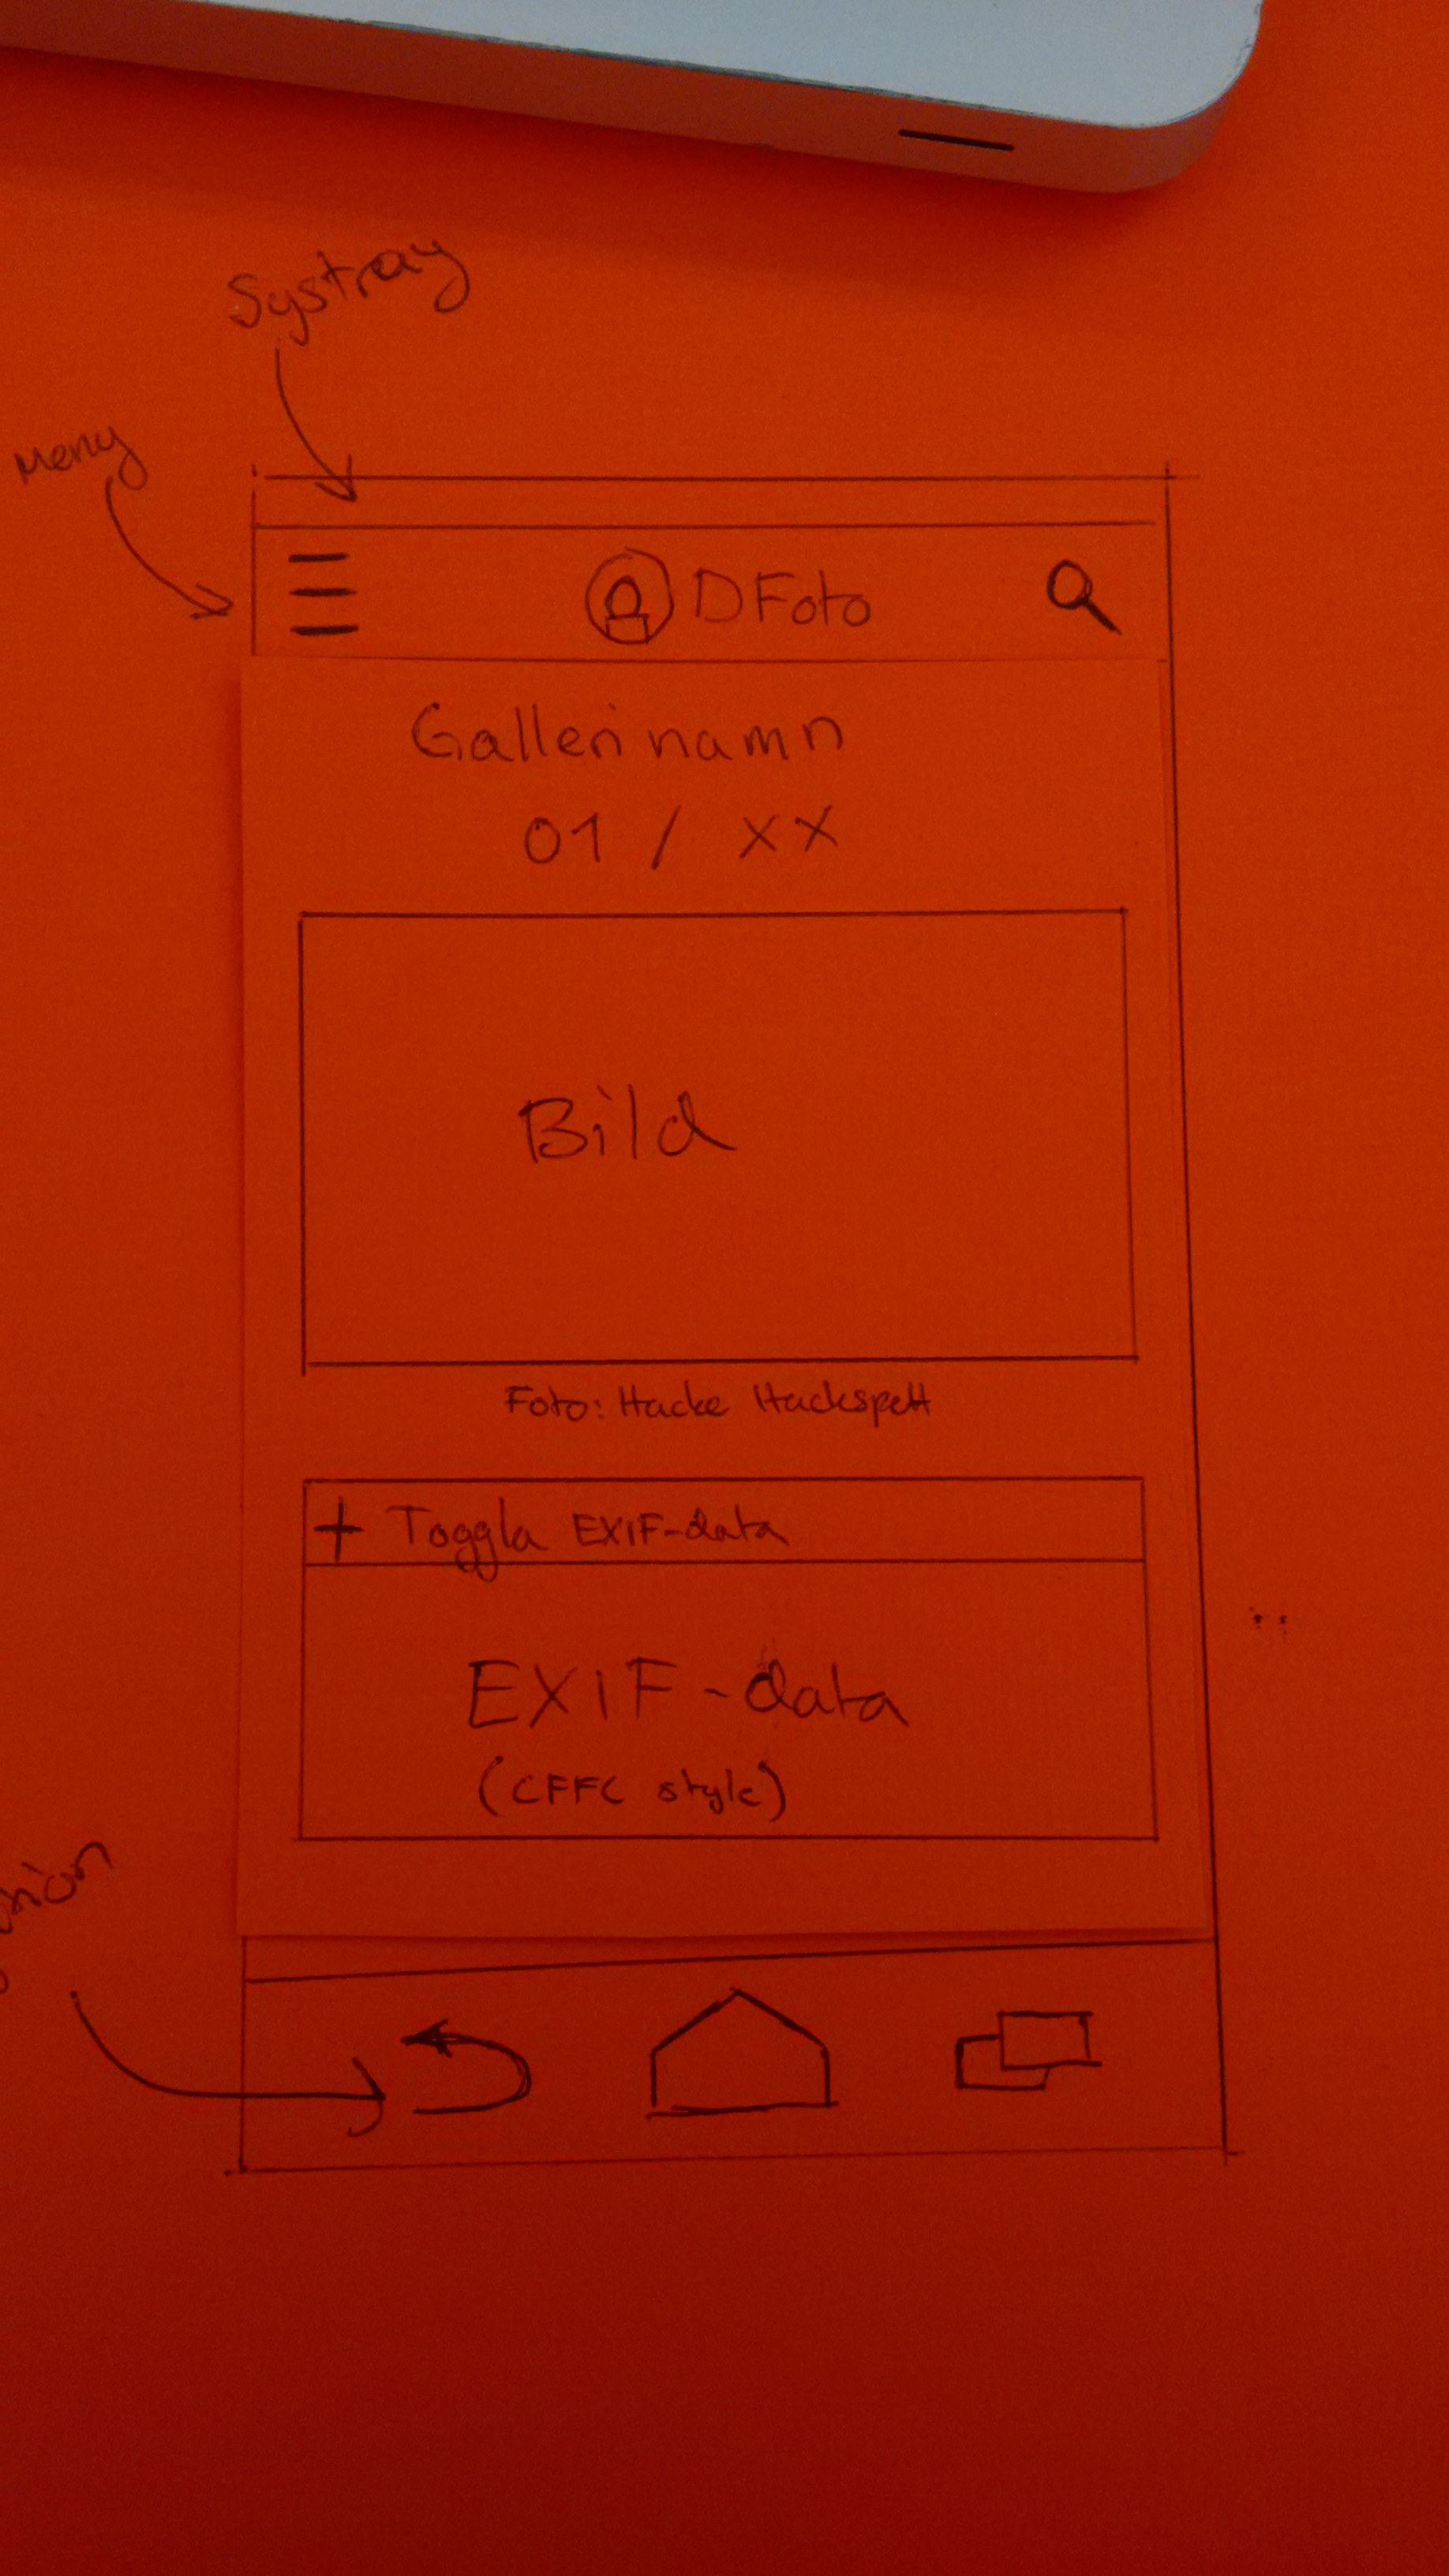 Systray
Meny
DFoto
Gallerinamn
01 / XX
Bild
Foto: Hacke Hackspett
+ Toggla EXIF-data
EXIF-data
(CFFC style)